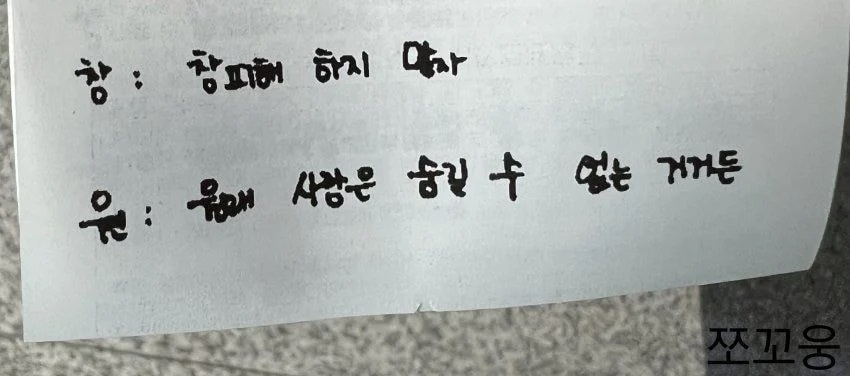 창: 창피해 하지 말자
원: 원래 사랑은 숨길 수 없는 거거든
쪼꼬웅